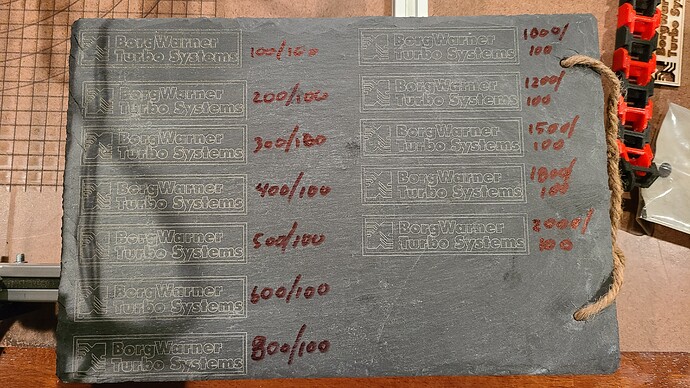 BorgWarner
Turbo Systems
100/100
BorgWarner
Turbo Systems
200/100
BorgWarner
Turbo Systems
300/100
BorgWarner
Turbo Systems
400/100
BorgWarner
Turbo Systems
500/100
BorgWarner
Turbo Systems
600/100
BorgWarner
Turbo Systems
800/100
BorgWarner
Turbo Systems
1000/
100
BorgWarner
Turbo Systems
1200/
100
BorgWarner
Turbo Systems
1500/
100
BorgWarner
Turbo Systems
1800/
100
BorgWarner
Turbo Systems
2000/
100